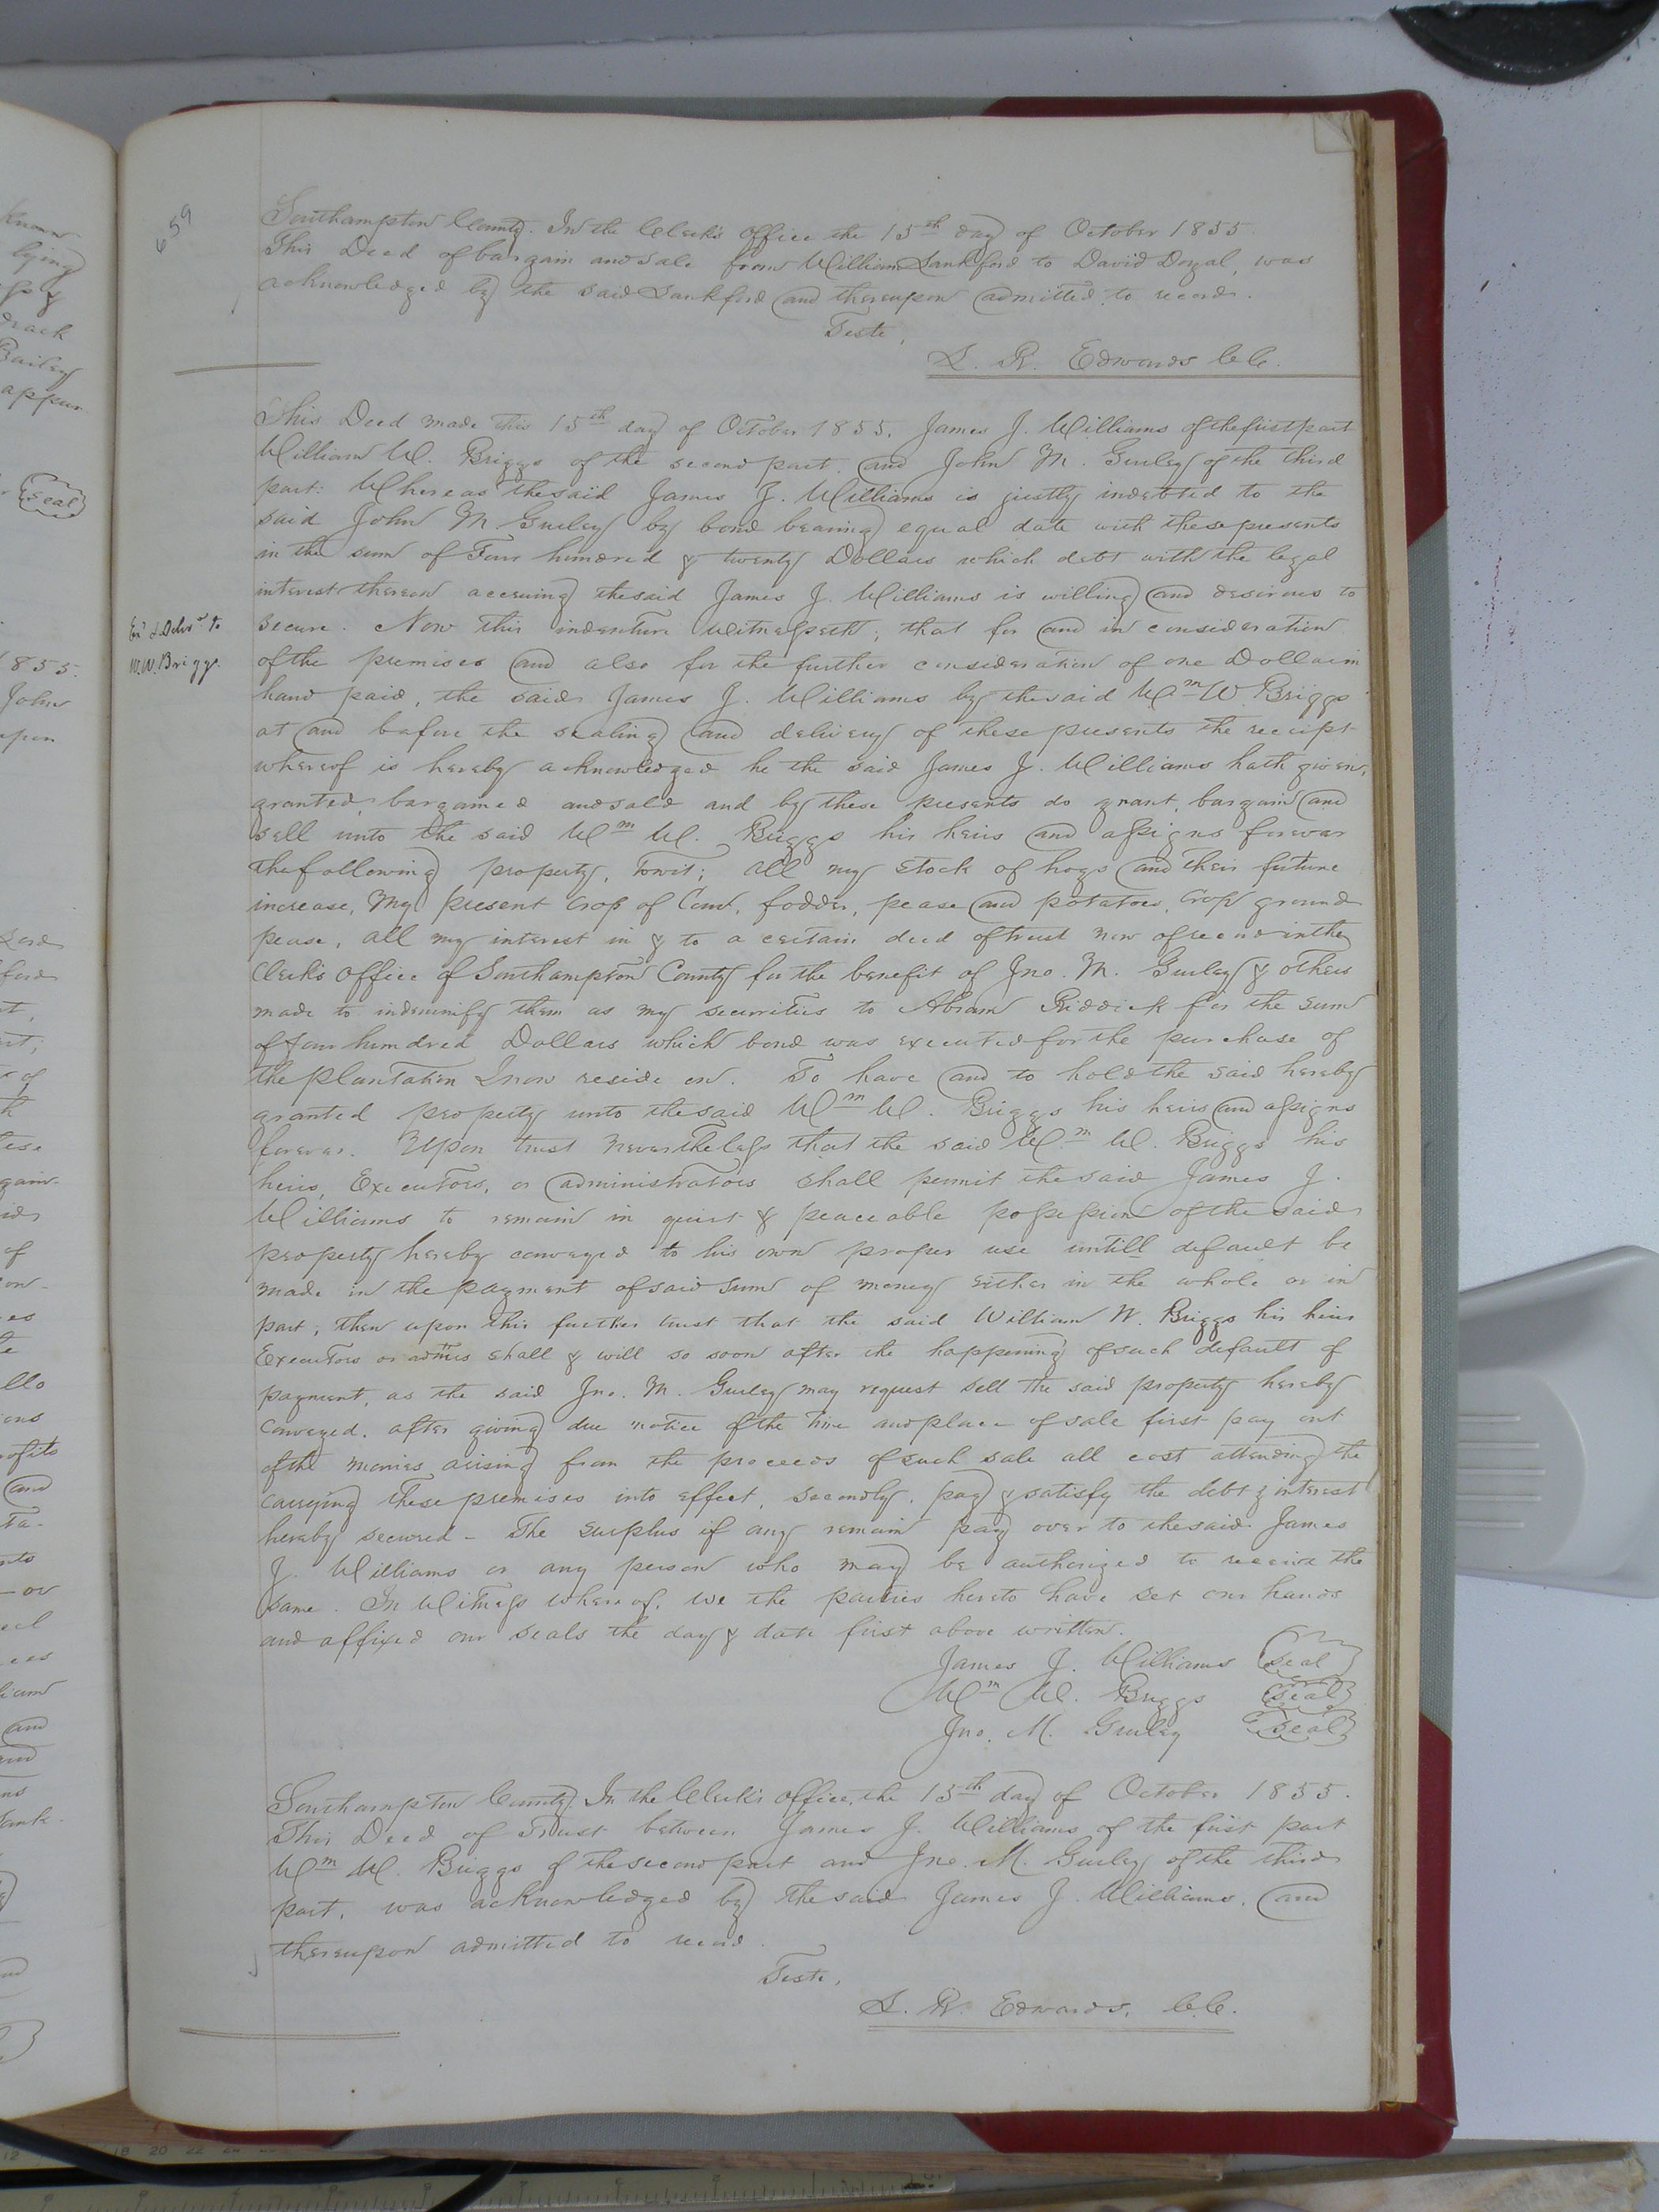 659
Southampton County. In the Clerk's Office the 15th day of October 1855.
This Deed of bargain and sale from William Lankford to David Doyal, was
acknowledged by the said Lankford and thereupon admitted to record.
Teste,
L. R. Edwards C.C.
This Deed made this 15th day of October 1855. James J. Williams of the first part
William W. Briggs of the second part, and John M. Gurley of the third
part: Whereas the said James J. Williams is justly indebted to the
said John M Gurley by bond bearing equal date with these presents
in the sum of Four hundred & twenty Dollars which debt with the legal
interest thereon accruing the said James J. Williams is willing and desirous to
secure. Now this indenture Witnesseth, that for and in consideration
of the premises and also for the further consideration of one Dollar in
hand paid, the said James J. Williams by the said Wm W. Briggs
at and before the sealing and delivery of these presents the receipt
whereof is hereby acknowledged he the said James J. Williams hath given,
granted, bargained and sold and by these presents do grant, bargain and
sell unto the said Wm W. Briggs his heirs and assigns forever
the following property, towit; all my stock of hogs and their future
increase, My present crop of Corn, fodder, pease and potatoes, Crop ground
pease, all my interest in & to a certain deed of trust now of record in the
Clerk's office of Southampton County for the benefit of Jno. M. Gurley & others
made to indemnify them as my securities to Abram Riddick for the sum
of four hundred Dollars which bond was executed for the purchase of
the plantation I now reside on. To have and to hold the said hereby
granted property unto the said Wm W. Briggs his heirs and assigns
forever. Upon trust nevertheless that the said Wm W. Briggs his
heirs, Executors, or administrators shall permit the said James J.
Williams to remain in quiet & peaceable possession of the said
property hereby conveyed to his own proper use untill default be
made in the payment of said sum of money either in the whole or in
part, then upon this further trust that the said William W. Briggs his heirs
Executors or admrs shall & will so soon after the happening of such default of
payment, as the said Jno. M. Gurley may request sell the said property hereby
conveyed, after giving due notice of the time and place of sale first pay out
of the monies arising from the proceeds of such sale all cost attending the
carrying these premises into effect, secondly, pay & satisfy the debt & interest
hereby secured - The surplus if any remain pay over to the said James
J. Williams or any person who may be authorized to receive the
same. In Witness whereof, we the parties hereto have set our hands
and affixed our seals the day & date first above written.
James J. Williams Seal
Wm W. Briggs Seal
Jno. M. Gurley Seal
Southampton County. In the Clerk's office, the 15th day of October 1855.
This Deed of Trust between James J. Williams of the first part
Wm W. Briggs of the second part and Jno. M. Gurley of the third
part, was acknowledged by the said James J. Williams, and
thereupon admitted to record.
Teste,
L. R. Edwards, C.C.
W.W. Briggs.